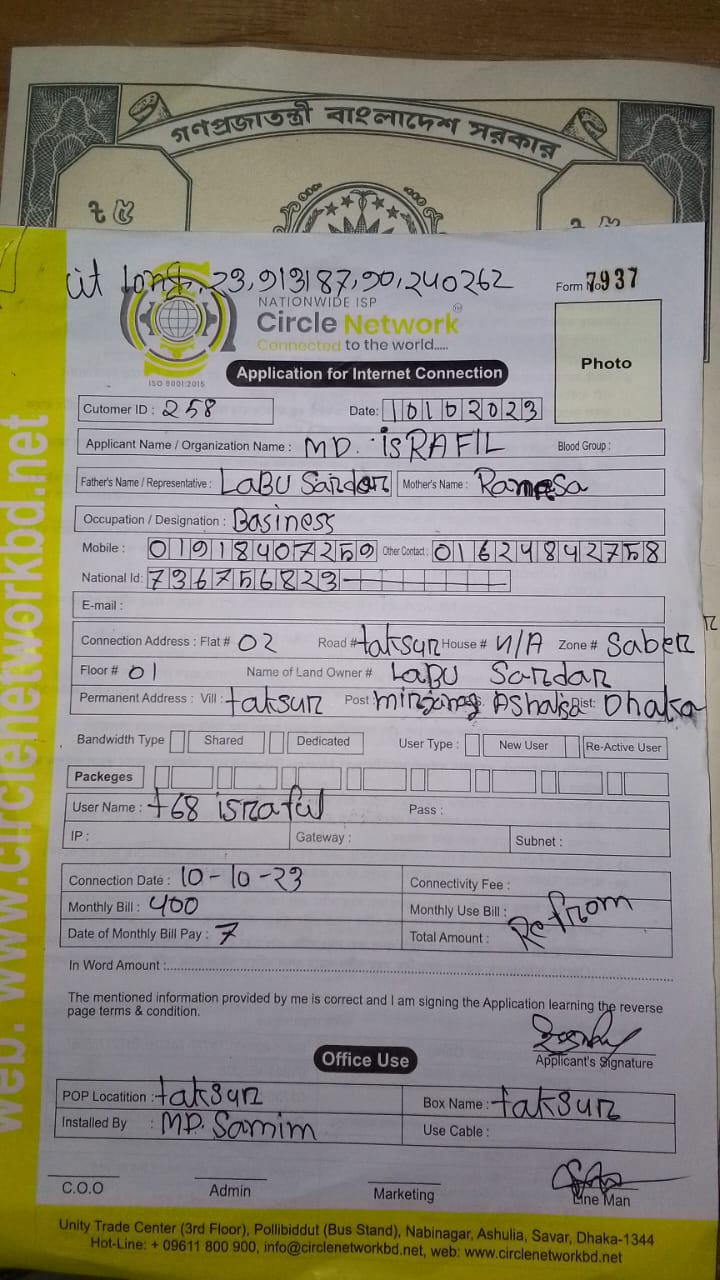 গণপ্রজাতন্ত্রী বাংলাদেশ সরকার
cit long, 23,913187,90,240262
Form No 7937
NATIONWIDE ISP
Circle Network
Connected to the world.....
ISO 9001:2015
Photo
Application for Internet Connection
Cutomer ID : 258 Date: 10102023
Applicant Name / Organization Name : MD. isRAFIL Blood Group :
Father's Name / Representative : LaBU Sardar Mother's Name : Ramesa
Occupation / Designation : Basiness
Mobile : 01918407259 Other Contact : 01624842758
National Id: 736756823
E-mail :
Connection Address : Flat # 02 Road # taksur House # N/A Zone # Saber
Floor # 01 Name of Land Owner # LaBU Sardar
Permanent Address : Vill : taksur Post : Dist: Dhaka
Bandwidth Type Shared Dedicated User Type : New User Re-Active User
Packeges
User Name : t68 israful Pass :
IP : Gateway : Subnet :
Connection Date : 10-10-23 Connectivity Fee :
Monthly Bill : 400 Monthly Use Bill :
Re from
Date of Monthly Bill Pay : 7 Total Amount :
In Word Amount :
The mentioned information provided by me is correct and I am signing the Application learning the reverse
page terms & condition.
Applicant's Signature
Office Use
POP Locatition : taksur Box Name : taksur
Installed By : MD. Samim Use Cable :
C.O.O Admin Marketing Line Man
Unity Trade Center (3rd Floor), Pollibiddut (Bus Stand), Nabinagar, Ashulia, Savar, Dhaka-1344
Hot-Line: + 09611 800 900, info@circlenetworkbd.net, web: www.circlenetworkbd.net
web: www.circlenetworkbd.net